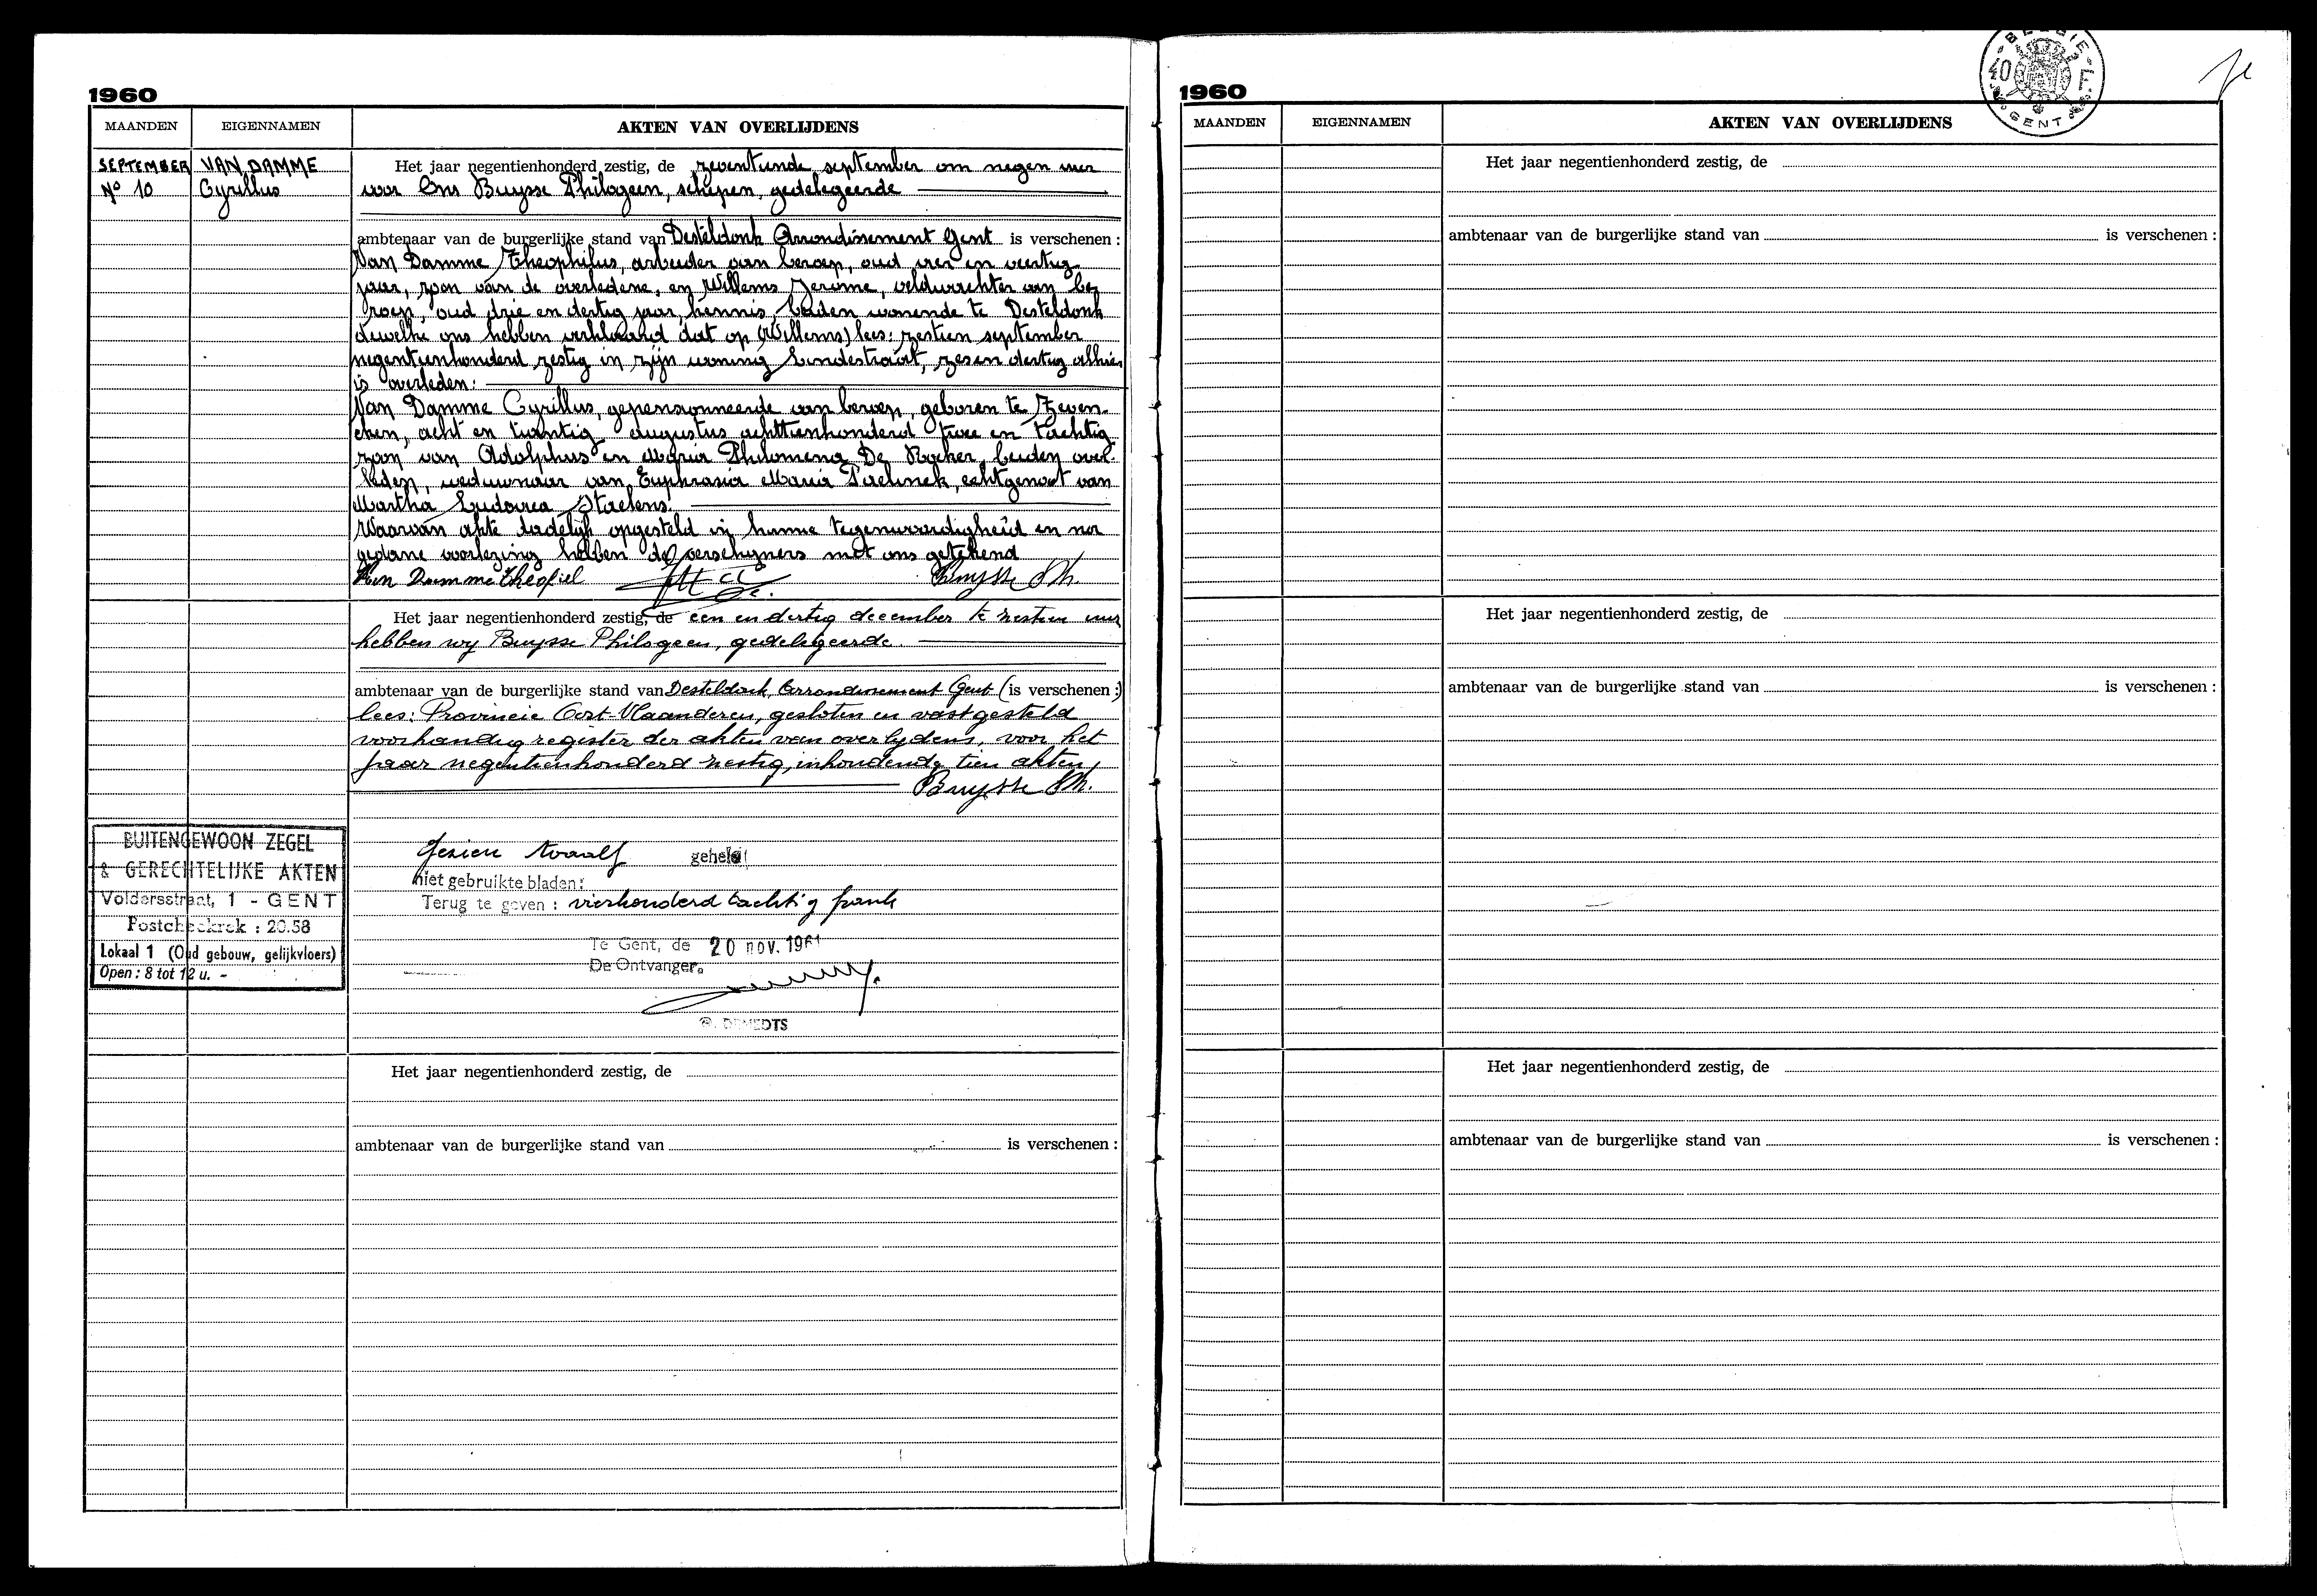 1960
MAANDEN EIGENNAMEN AKTEN VAN OVERLIJDENS
SEPTEMBER VAN DAMME Het jaar negentienhonderd zestig, de zeventiende september om negen uur
N° 10 Cyrillus voor Ons Buysse Philogeen, schepen, gedelegeerde
ambtenaar van de burgerlijke stand van Desteldonk Arrondissement Gent is verschenen :
Van Damme Theophilus, arbeider van beroep, oud vier en veertig
jaar, zoon van de overledene, en Willems Jerome, veldwachter van be
roep, oud drie en dertig jaar, kennis, beiden wonende te Desteldonk
dewelke ons hebben verklaard dat op (Willems) lees: zestien september
negentienhonderd zestig in zijn woning Lindestraat, zesen dertig alhier
is overleden:
Van Damme Cyrillus, gepensionneerde van beroep, geboren te Zeven-
eken, acht en twintig augustus achttienhonderd twee en tachtig
zoon van Adolphus en Maria Philomena De Kocker, beiden over-
leden, weduwnaar van Euphrasia Maria Paelinck, echtgenoot van
Martha Ludovica Staelens.
Waarvan akte dadelijk opgesteld in hunne tegenwoordigheid en na
gedane voorlezing hebben de verschijners met ons getekend
Van Damme Theofiel Buysse Ph.
Het jaar negentienhonderd zestig, de een en dertig december te zestien uur
hebben wij Buysse Philogeen, gedelegeerde.
ambtenaar van de burgerlijke stand van Desteldonk, Arrondissement Gent (is verschenen :)
lees: Provincie Oost-Vlaanderen, gesloten en vastgesteld
voorhandig register der akten van overlijdens, voor het
jaar negentienhonderd zestig, inhoudende tien akten
Buysse Ph.
BUITENGEWOON ZEGEL
& GERECHTELIJKE AKTEN
Voldersstraat, 1 - GENT
Postcheckrek : 20.58
Lokaal 1 (Oud gebouw, gelijkvloers)
Open : 8 tot 12 u. -
Gezien twaalf geheel
niet gebruikte bladen:
Terug te geven : vierhonderd tachtig frank
Te Gent, de 20 nov. 1961
De Ontvanger.
DEMEDTS
Het jaar negentienhonderd zestig, de
ambtenaar van de burgerlijke stand van is verschenen :
BELGIE
40 F.
GENT
1960
MAANDEN EIGENNAMEN AKTEN VAN OVERLIJDENS
Het jaar negentienhonderd zestig, de
ambtenaar van de burgerlijke stand van is verschenen :
Het jaar negentienhonderd zestig, de
ambtenaar van de burgerlijke stand van is verschenen :
Het jaar negentienhonderd zestig, de
ambtenaar van de burgerlijke stand van is verschenen :